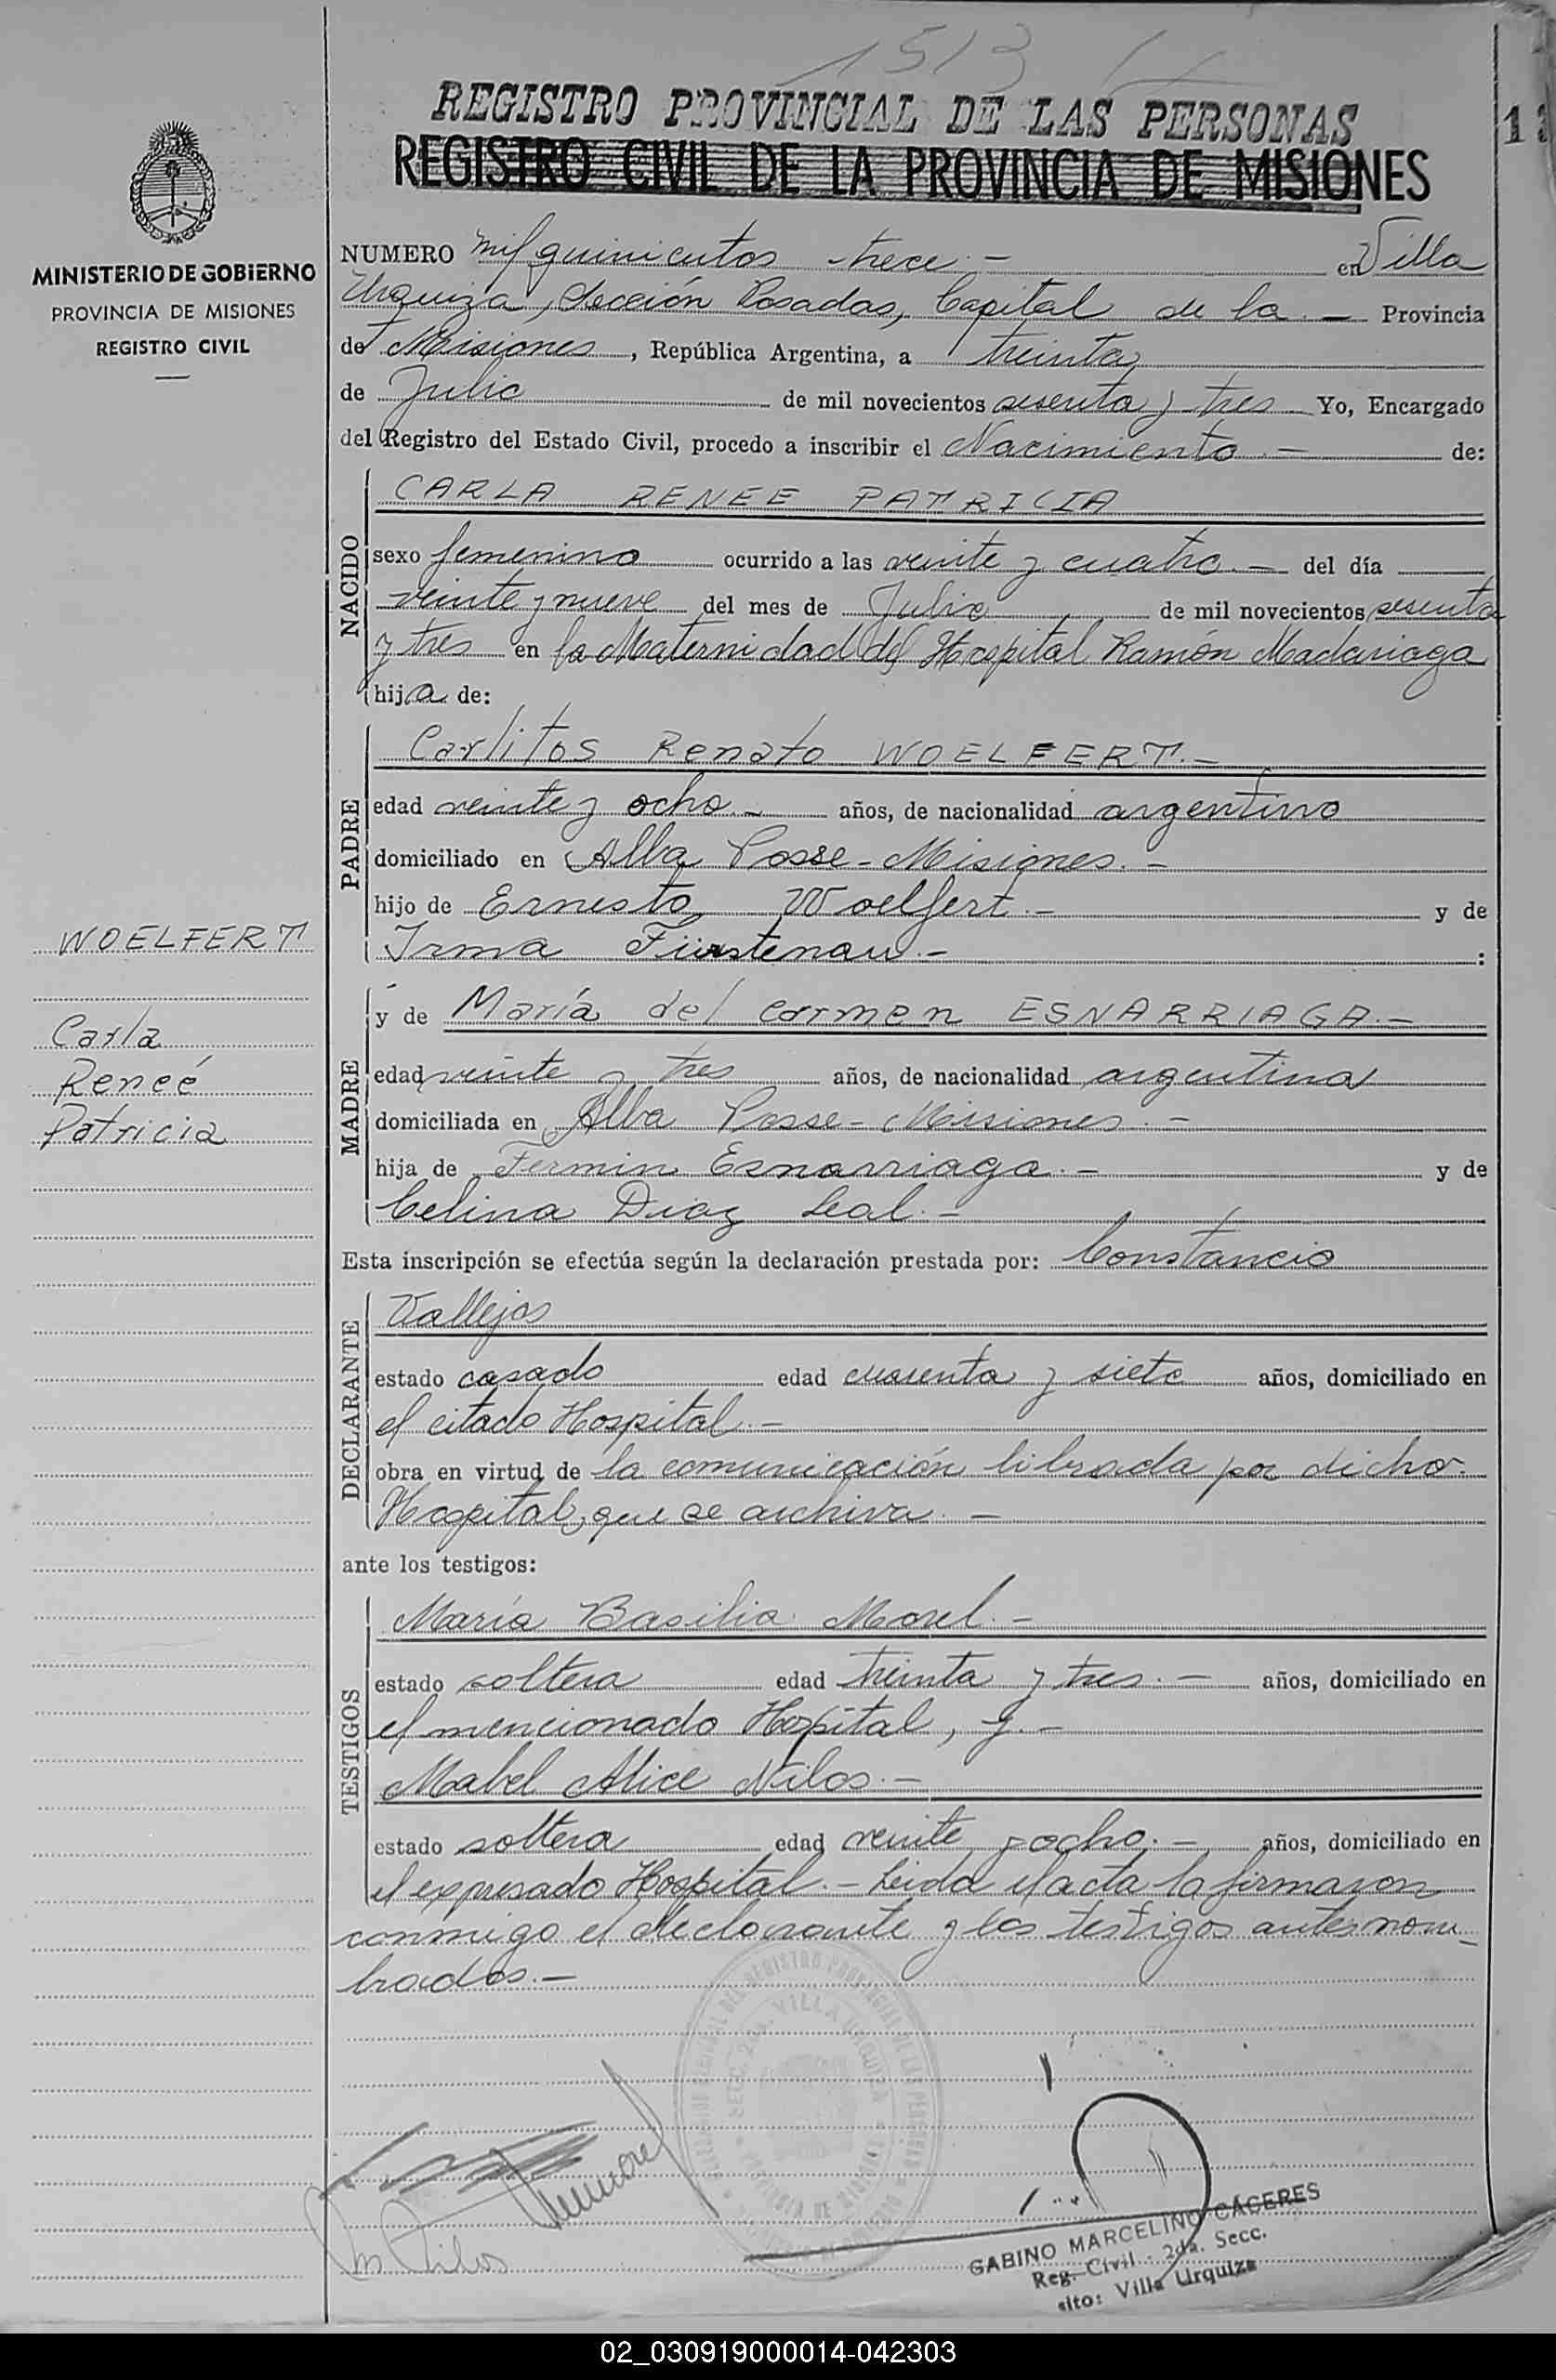 1513
REGISTRO PROVINCIAL DE LAS PERSONAS
REGISTRO CIVIL DE LA PROVINCIA DE MISIONES
MINISTERIO DE GOBIERNO
PROVINCIA DE MISIONES
REGISTRO CIVIL
NUMERO mil quinientos trece.- en Villa
Urquiza, Sección Posadas, Capital de la.- Provincia
de Misiones, República Argentina, a treinta
de Julio de mil novecientos sesenta y tres Yo, Encargado
del Registro del Estado Civil, procedo a inscribir el Nacimiento.- de:
NACIDO
CARLA RENEE PATRICIA
sexo femenino ocurrido a las veinte y cuatro.- del día
veinte y nueve del mes de Julio de mil novecientos sesenta
y tres en la Maternidad del Hospital Ramón Madariaga
hija de:
PADRE
Carlitos Renato WOELFERT.-
edad veinte y ocho.- años, de nacionalidad argentino
domiciliado en Alba Posse-Misiones.-
hijo de Ernesto Woelfert.- y de
Irma Fürstenau.- :
WOELFERT
Carla
Reneé
Patricia
MADRE
y de María del Carmen ESNARRIAGA.-
edad veinte y tres años, de nacionalidad argentina
domiciliada en Alba Posse-Misiones.-
hija de Fermin Esnarriaga.- y de
Celina Diaz Leal.-
Esta inscripción se efectúa según la declaración prestada por: Constancio
DECLARANTE
Vallejos
estado casado edad cuarenta y siete años, domiciliado en
el citado Hospital.-
obra en virtud de la comunicación librada por dicho
Hospital, que se archiva.-
ante los testigos:
TESTIGOS
María Basilia Morel.-
estado soltera edad treinta y tres.- años, domiciliado en
el mencionado Hospital, y.-
Mabel Alice Nilos.-
estado soltera edad veinte y ocho.- años, domiciliado en
el expresado Hospital.- Leída el acta la firmaron
conmigo el declarante y los testigos antes nom-
brados.-
SECC. 2da. VILLA URQUIZA
GABINO MARCELINO CÁCERES
Reg. Civil - 2da. Secc.
sito: Villa Urquiza
02_030919000014-042303